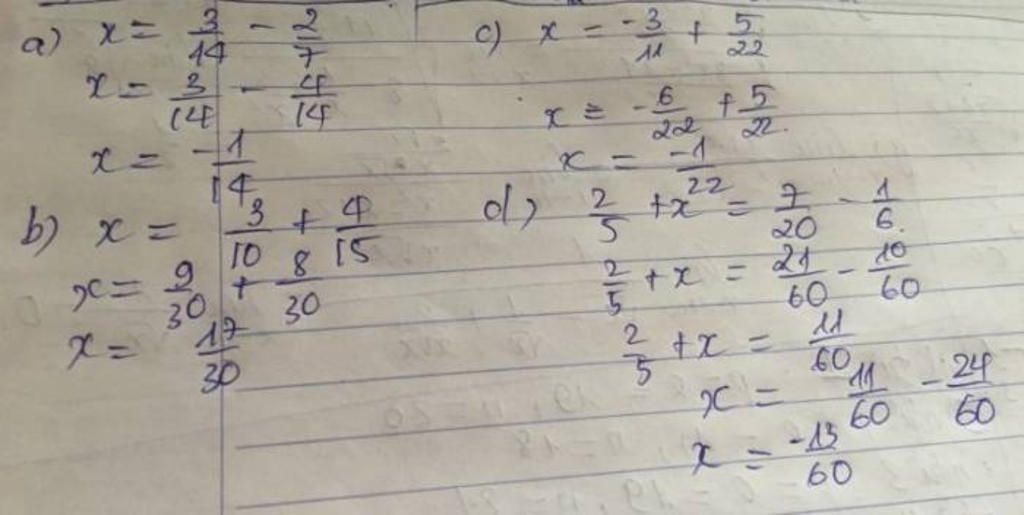 a) x = 3/14 - 2/7
x = 3/14 - 4/14
x = -1/14
b) x = 3/10 + 4/15
x = 9/30 + 8/30
x = 17/30
c) x = -3/11 + 5/22
x = -6/22 + 5/22.
x = -1/22
d) 2/5 + x = 7/20 - 1/6.
2/5 + x = 21/60 - 10/60
2/5 + x = 11/60
x = 11/60 - 24/60
x = -13/60